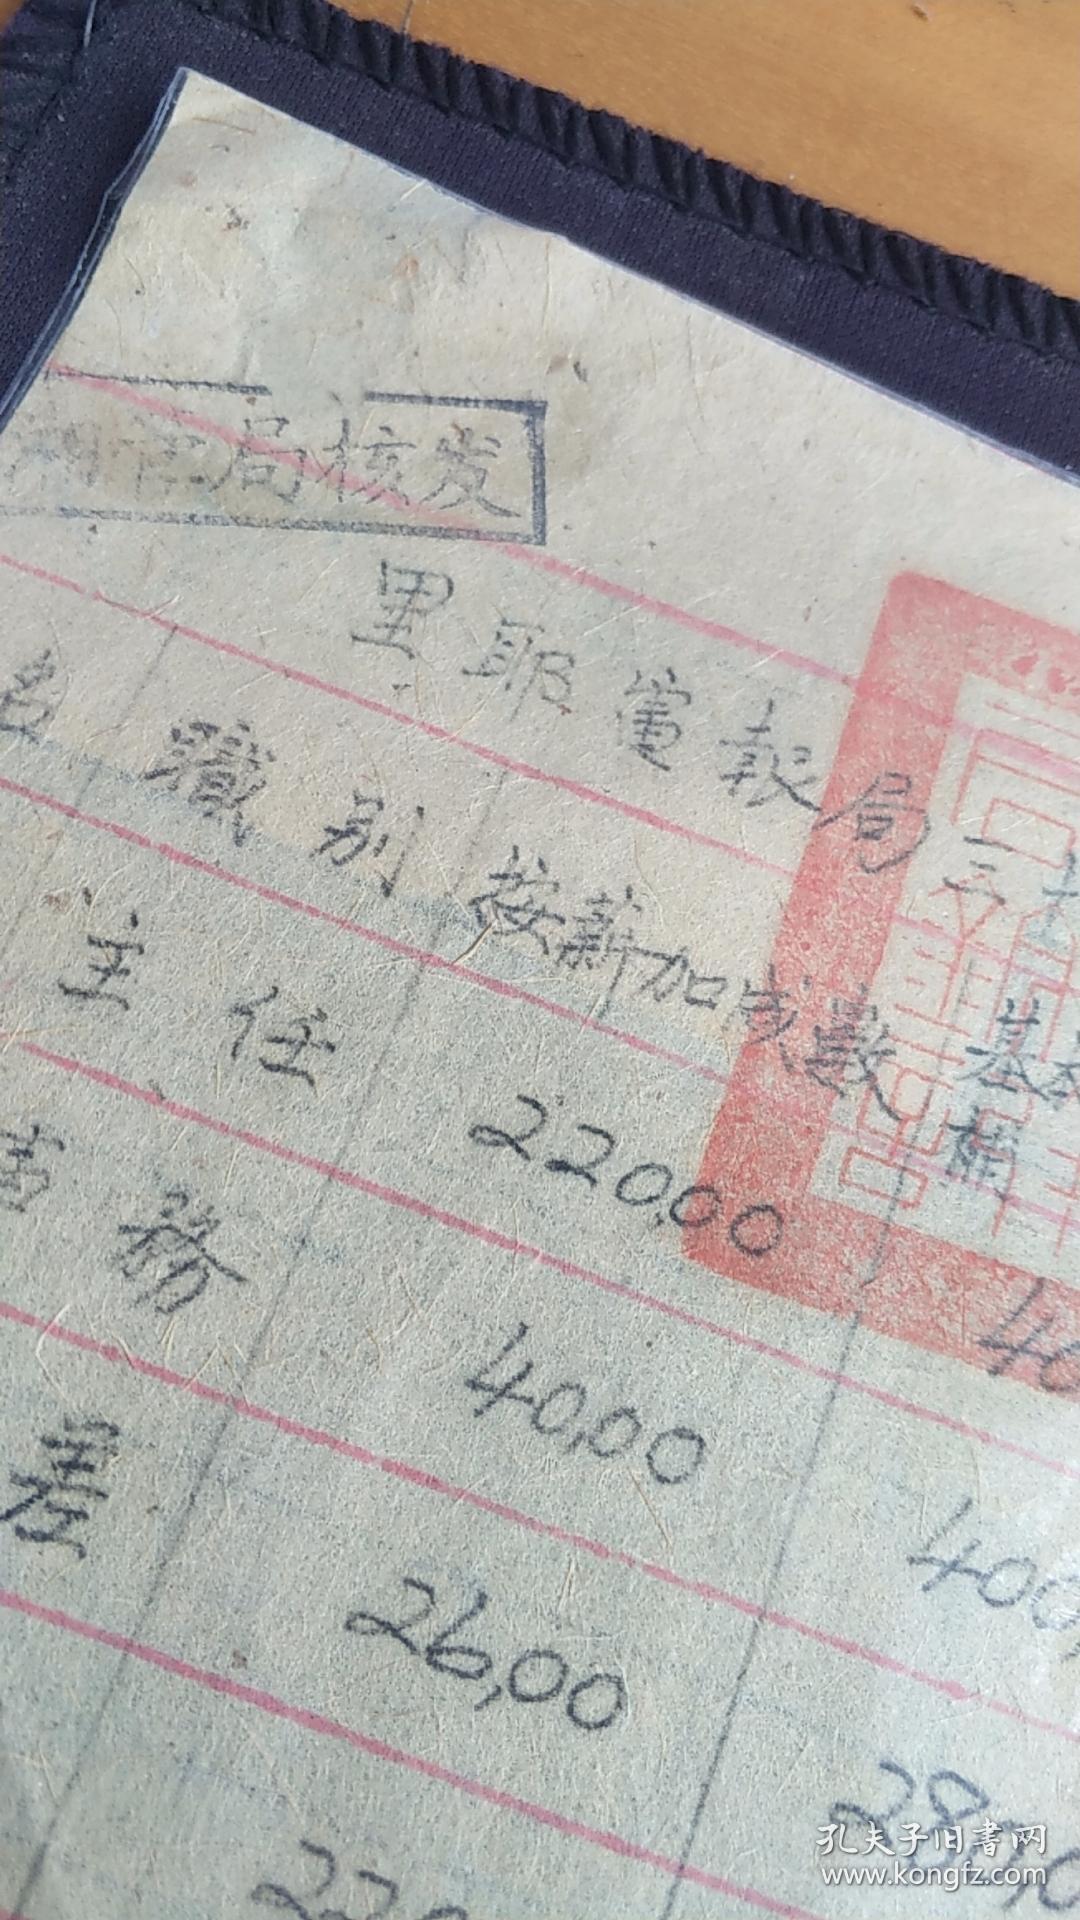 局核发
里耶電報局三十
名 職別 按薪加成數 基本
補
主任 220,00 40
務 40,00 400,
差 26,00 280,0
220
孔夫子旧書网
www.kongfz.com